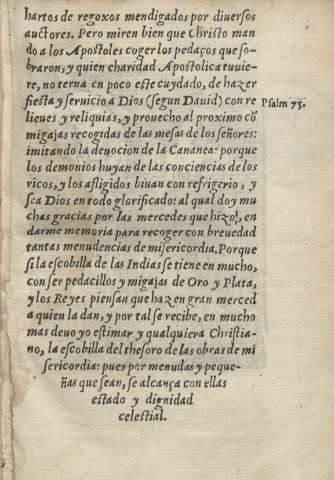 hartos de regoxos mendigados por diuersos
auctores. Pero miren bien que Christo man
do a los Apostoles coger los pedaços que so-
braron, y quien charidad Apostolica tuuie-
re, no terna en poco este cuydado, de hazer
fiesta y seruicio a Dios (segun Dauid) con re
Psalm 75.
lieues y reliquias, y prouecho al proximo cõ
migajas recogidas de las mesas de los señores:
imitando la deuocion de la Cananea: porque
los demonios huyan de las conciencias de los
ricos, y los afligidos biuan con refrigerio, y
sea Dios en todo glorificado: al qual doy mu
chas gracias por las mercedes que hizo, en
darme memoria para recoger con breuedad
tantas menudencias de misericordia. Porque
si la escobilla de las Indias se tiene en mucho,
con ser pedacillos y migajas de Oro y Plata,
y los Reyes piensan que hazen gran merced
a quien la dan, y por tal se recibe, en mucho
mas deuo yo estimar y qualquiera Christia-
no, la escobilla del thesoro de las obras de mi
sericordia: pues por menudas y peque-
ñas que sean, se alcança con ellas
estado y dignidad
celestial.